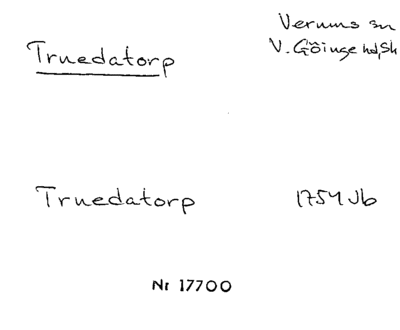 Truedatorp
Verums sn
V. Göinge hd, Sk
Truedatorp
1754 Jb
Nr 17700